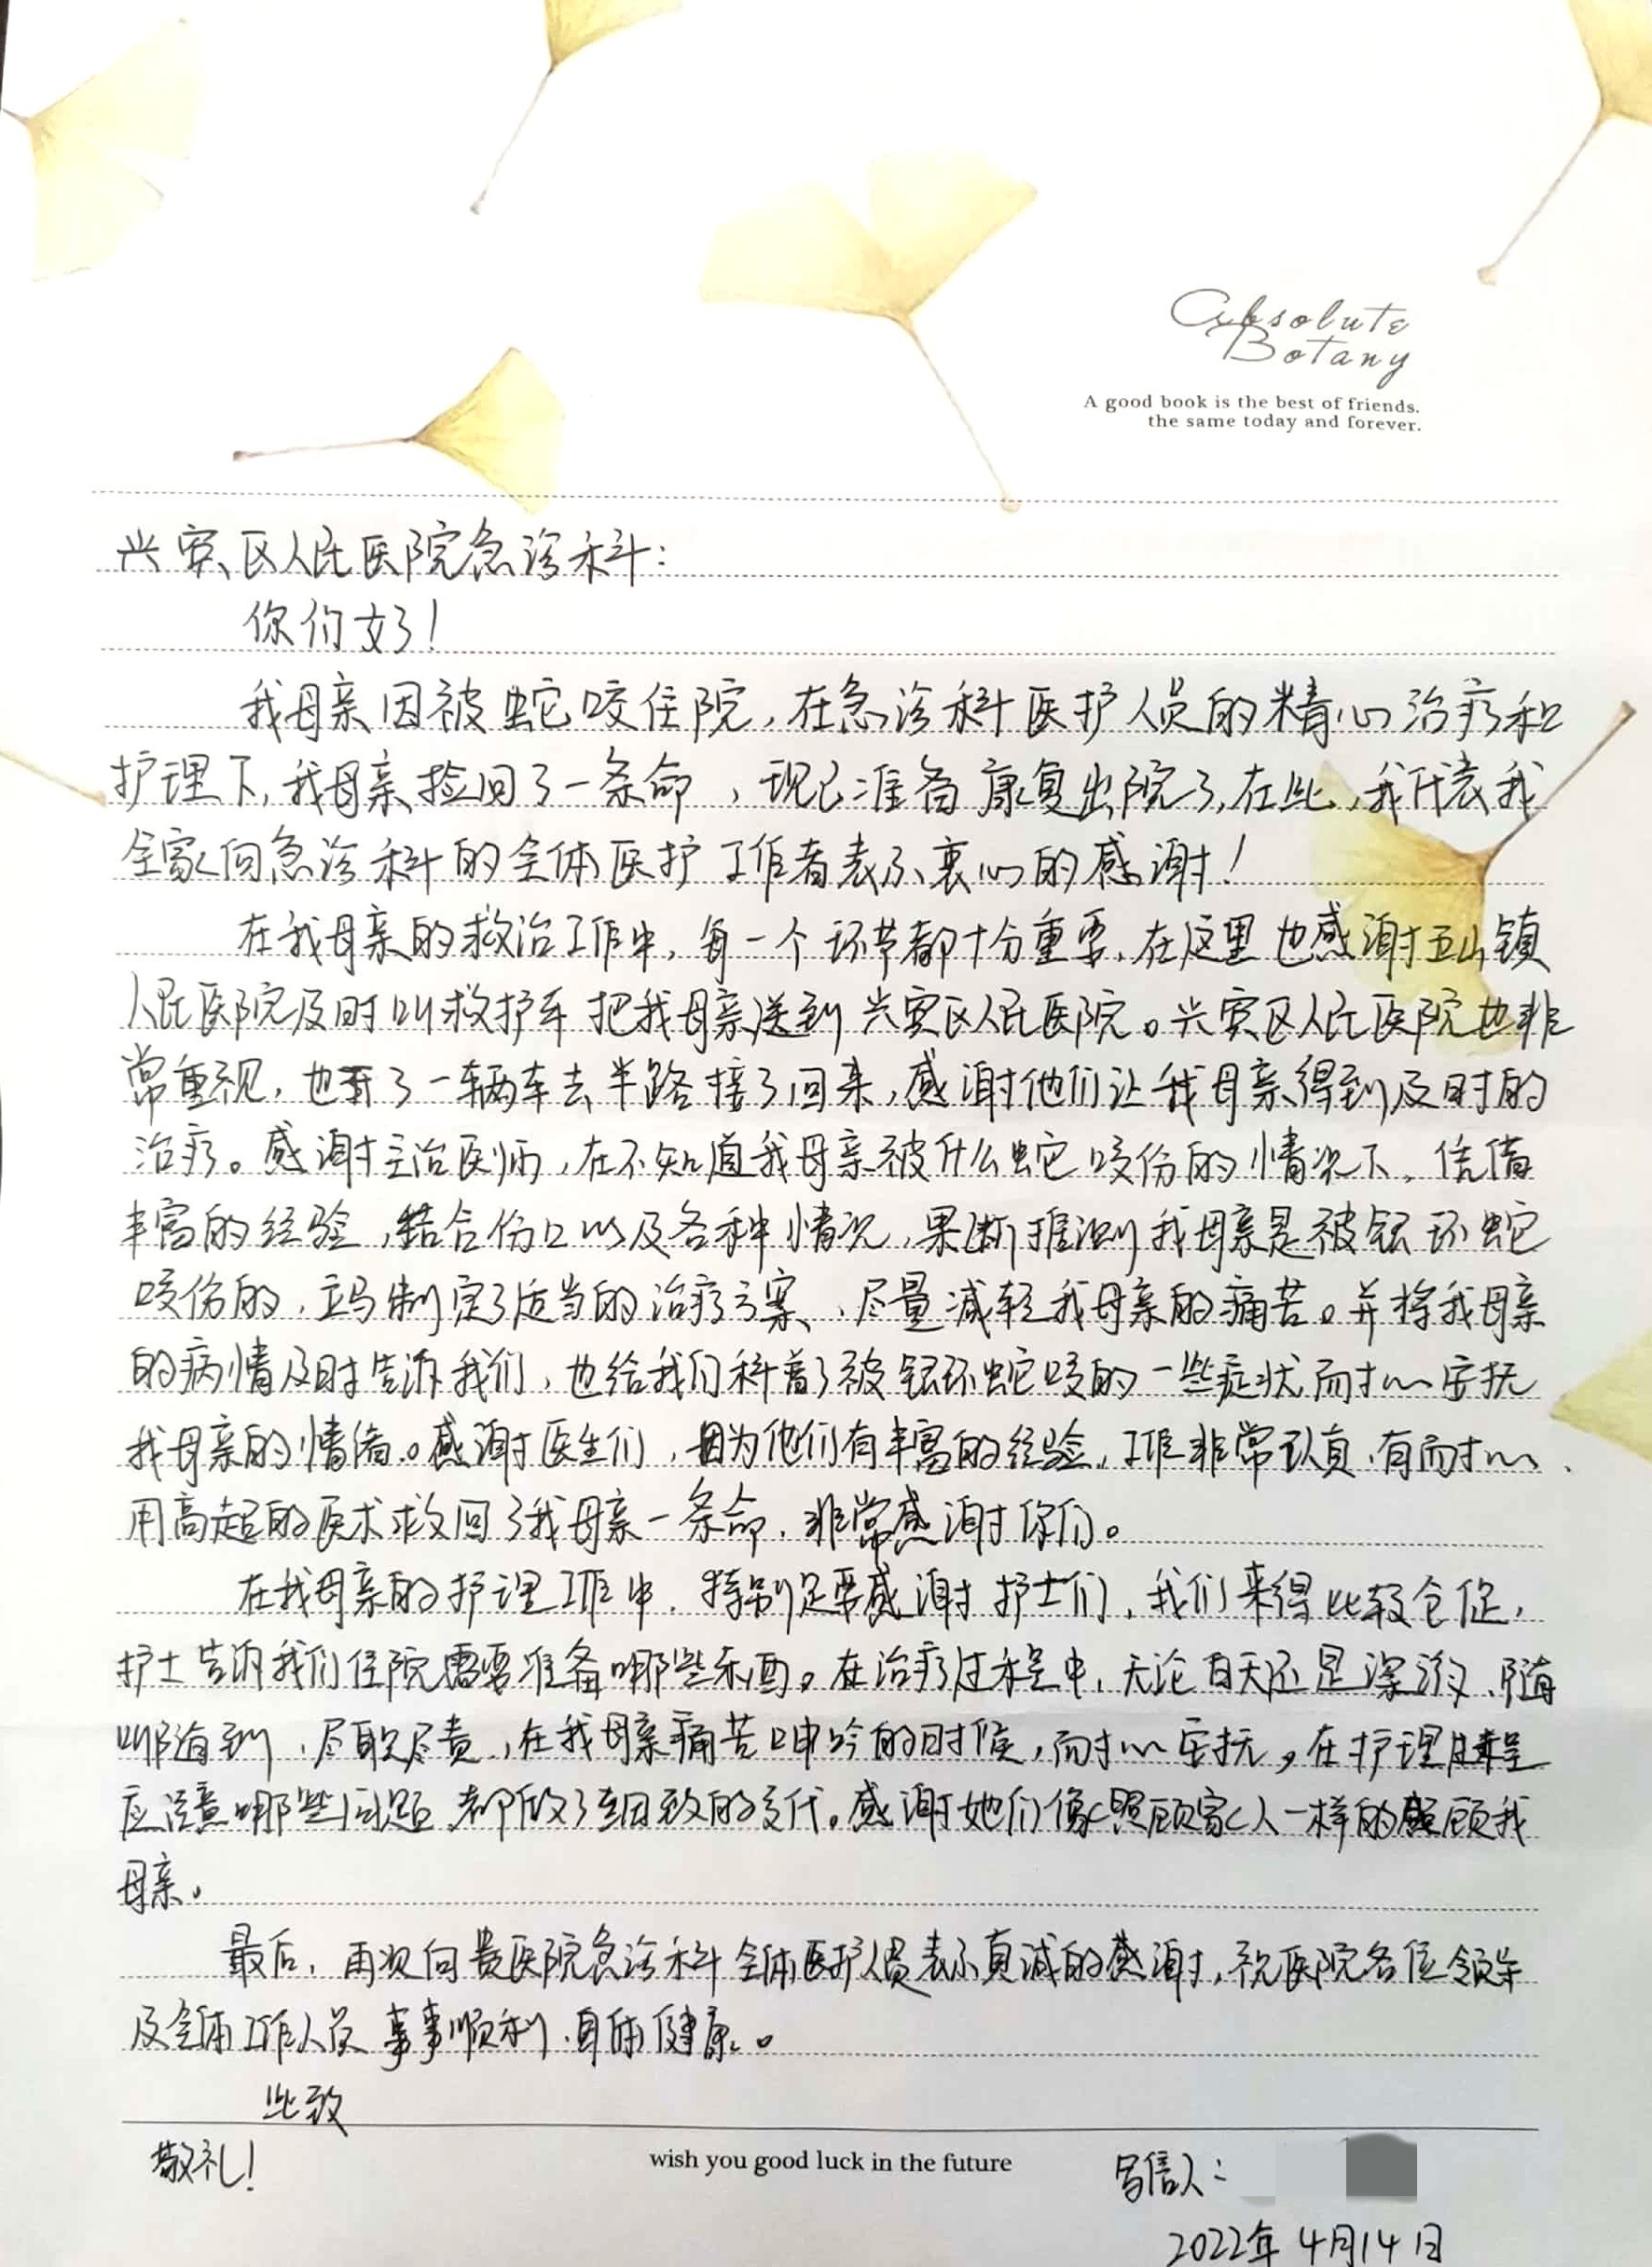 Absolute
Botany
A good book is the best of friends.
the same today and forever.
兴宾区人民医院急诊科：
你们好！
我母亲因被蛇咬住院，在急诊科医护人员的精心治疗和
护理下，我母亲捡回了一条命，现已准备康复出院了，在此，我代表我
全家向急诊科的全体医护工作者表示衷心的感谢！
在我母亲的救治工作中，每一个环节都十分重要，在这里也感谢五山镇
人民医院及时叫救护车把我母亲送到兴宾区人民医院。兴宾区人民医院也非
常重视，也开了一辆车去半路接了回来，感谢他们让我母亲得到及时的
治疗。感谢主治医师，在不知道我母亲被什么蛇咬伤的情况下，凭借
丰富的经验，结合伤口以及各种情况，果断推测我母亲是被银环蛇
咬伤的，立马制定了适当的治疗方案，尽量减轻我母亲的痛苦。并将我母亲
的病情及时告诉我们，也给我们科普了被银环蛇咬的一些症状，耐心安抚
我母亲的情绪。感谢医生们，因为他们有丰富的经验，工作非常认真，有耐心，
用高超的医术救回了我母亲一条命，非常感谢你们。
在我母亲的护理工作中，特别是要感谢护士们，我们来得比较仓促，
护士告诉我们住院需要准备哪些东西。在治疗过程中，无论白天还是深夜，随
叫随到，尽职尽责，在我母亲痛苦呻吟的时候，耐心安抚，在护理过程
应注意哪些问题，都做了细致的交代。感谢她们像照顾家人一样的照顾我
母亲。
最后，再次向贵医院急诊科全体医护人员表示真诚的感谢，祝医院各位领导
及全体工作人员事事顺利，身体健康。
此致
敬礼！
wish you good luck in the future
写信人：
2022年4月14日